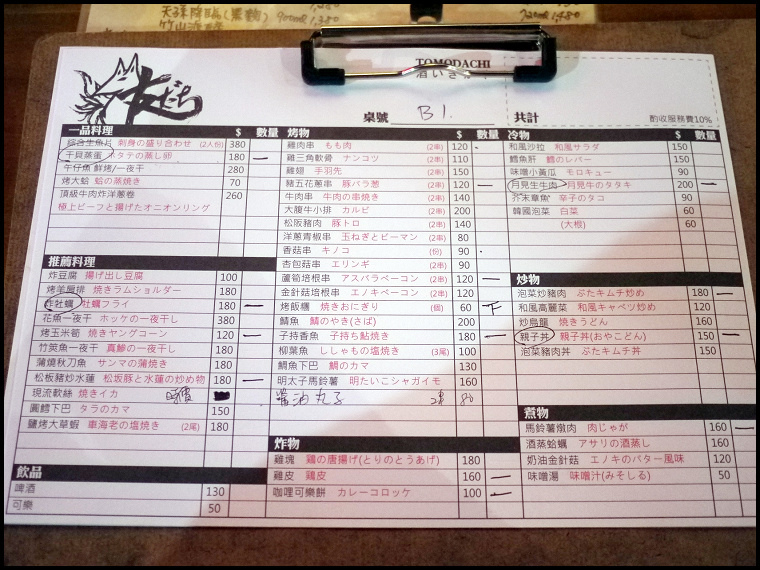 天孫降臨(黑鶴)
900ml 1,380
720ml 1,480
TOMODACHI
友だち
桌號 B1.
共計
酌收服務費10%
一品料理 $ 數量
綜合生魚片 刺身の盛り合わせ (2人份) 380
干貝蒸蛋 ホタテの蒸し卵 180 一
午仔魚 鮮烤/一夜干 280
烤大蛤 蛤の蒸焼き 70
頂級牛肉炸洋蔥卷 260
極上ビーフと揚げたオニオンリング
推薦料理
炸豆腐 揚げ出し豆腐 100
烤羊肩排 焼きラムショルダー 180
炸牡蠣 牡蠣フライ 180 一
花魚一夜干 ホッケの一夜干し 280
烤玉米筍 焼きヤングコーン 120 一
竹筴魚一夜干 真鯵の一夜干し 180
蒲燒秋刀魚 サンマの蒲焼き 180
松板豬炒水蓮 松坂豚と水蓮の炒め物 180 一
現流軟絲 焼きイカ 時價
圓鱈下巴 タラのカマ 150
鹽烤大草蝦 車海老の塩焼き (2尾) 180
飲品
啤酒 130
可樂 50
烤物 $ 數量
雞肉串 もも肉 (2串) 120
雞三角軟骨 ナンコツ (2串) 110
雞翅 手羽先 (2串) 150
豬五花蔥串 豚バラ葱 (2串) 120 一
牛肉串 牛肉の串焼き (2串) 140
大腹牛小排 カルビ (2串) 200
松阪豬肉 豚トロ (2串) 140
洋蔥青椒串 玉ねぎとピーマン (2串) 80
香菇串 キノコ (份) 90
杏包菇串 エリンギ (2串) 90
蘆筍培根串 アスパラベーコン (2串) 120 一
金針菇培根串 エノキベーコン (2串) 120
烤飯糰 焼きおにぎり (個) 60 下
鯖魚 鯖のやき(さば) 200
子持香魚 子持ち鮎焼き 180 一
柳葉魚 ししゃもの塩焼き (3尾) 100
鯛魚下巴 鯛のカマ 130
明太子馬鈴薯 明たいこシャガイモ 160
醬油丸子 2串 80
炸物
雞塊 鶏の唐揚げ(とりのとうあげ) 180
雞皮 鶏皮 160 一
咖哩可樂餅 カレーコロッケ 100 一
冷物 $ 數量
和風沙拉 和風サラダ 150
鱈魚肝 鱈のレバー 150
味噌小黃瓜 モロキュー 90
月見生牛肉 月見牛のタタキ 200 一
芥末章魚 辛子のタコ 90
韓國泡菜 白菜 60
(大根) 60
炒物
泡菜炒豬肉 ぶたキムチ炒め 180 一
和風高麗菜 和風キャベツ炒め 120
炒烏龍 焼きうどん 160
親子丼 親子丼(おやこどん) 150 一
泡菜豬肉丼 ぶたキムチ丼 150
煮物
馬鈴薯燉肉 肉じゃが 160 一
酒蒸蛤蠣 アサリの酒蒸し 160
奶油金針菇 エノキのバター風味 120
味噌湯 味噌汁(みそしる) 50